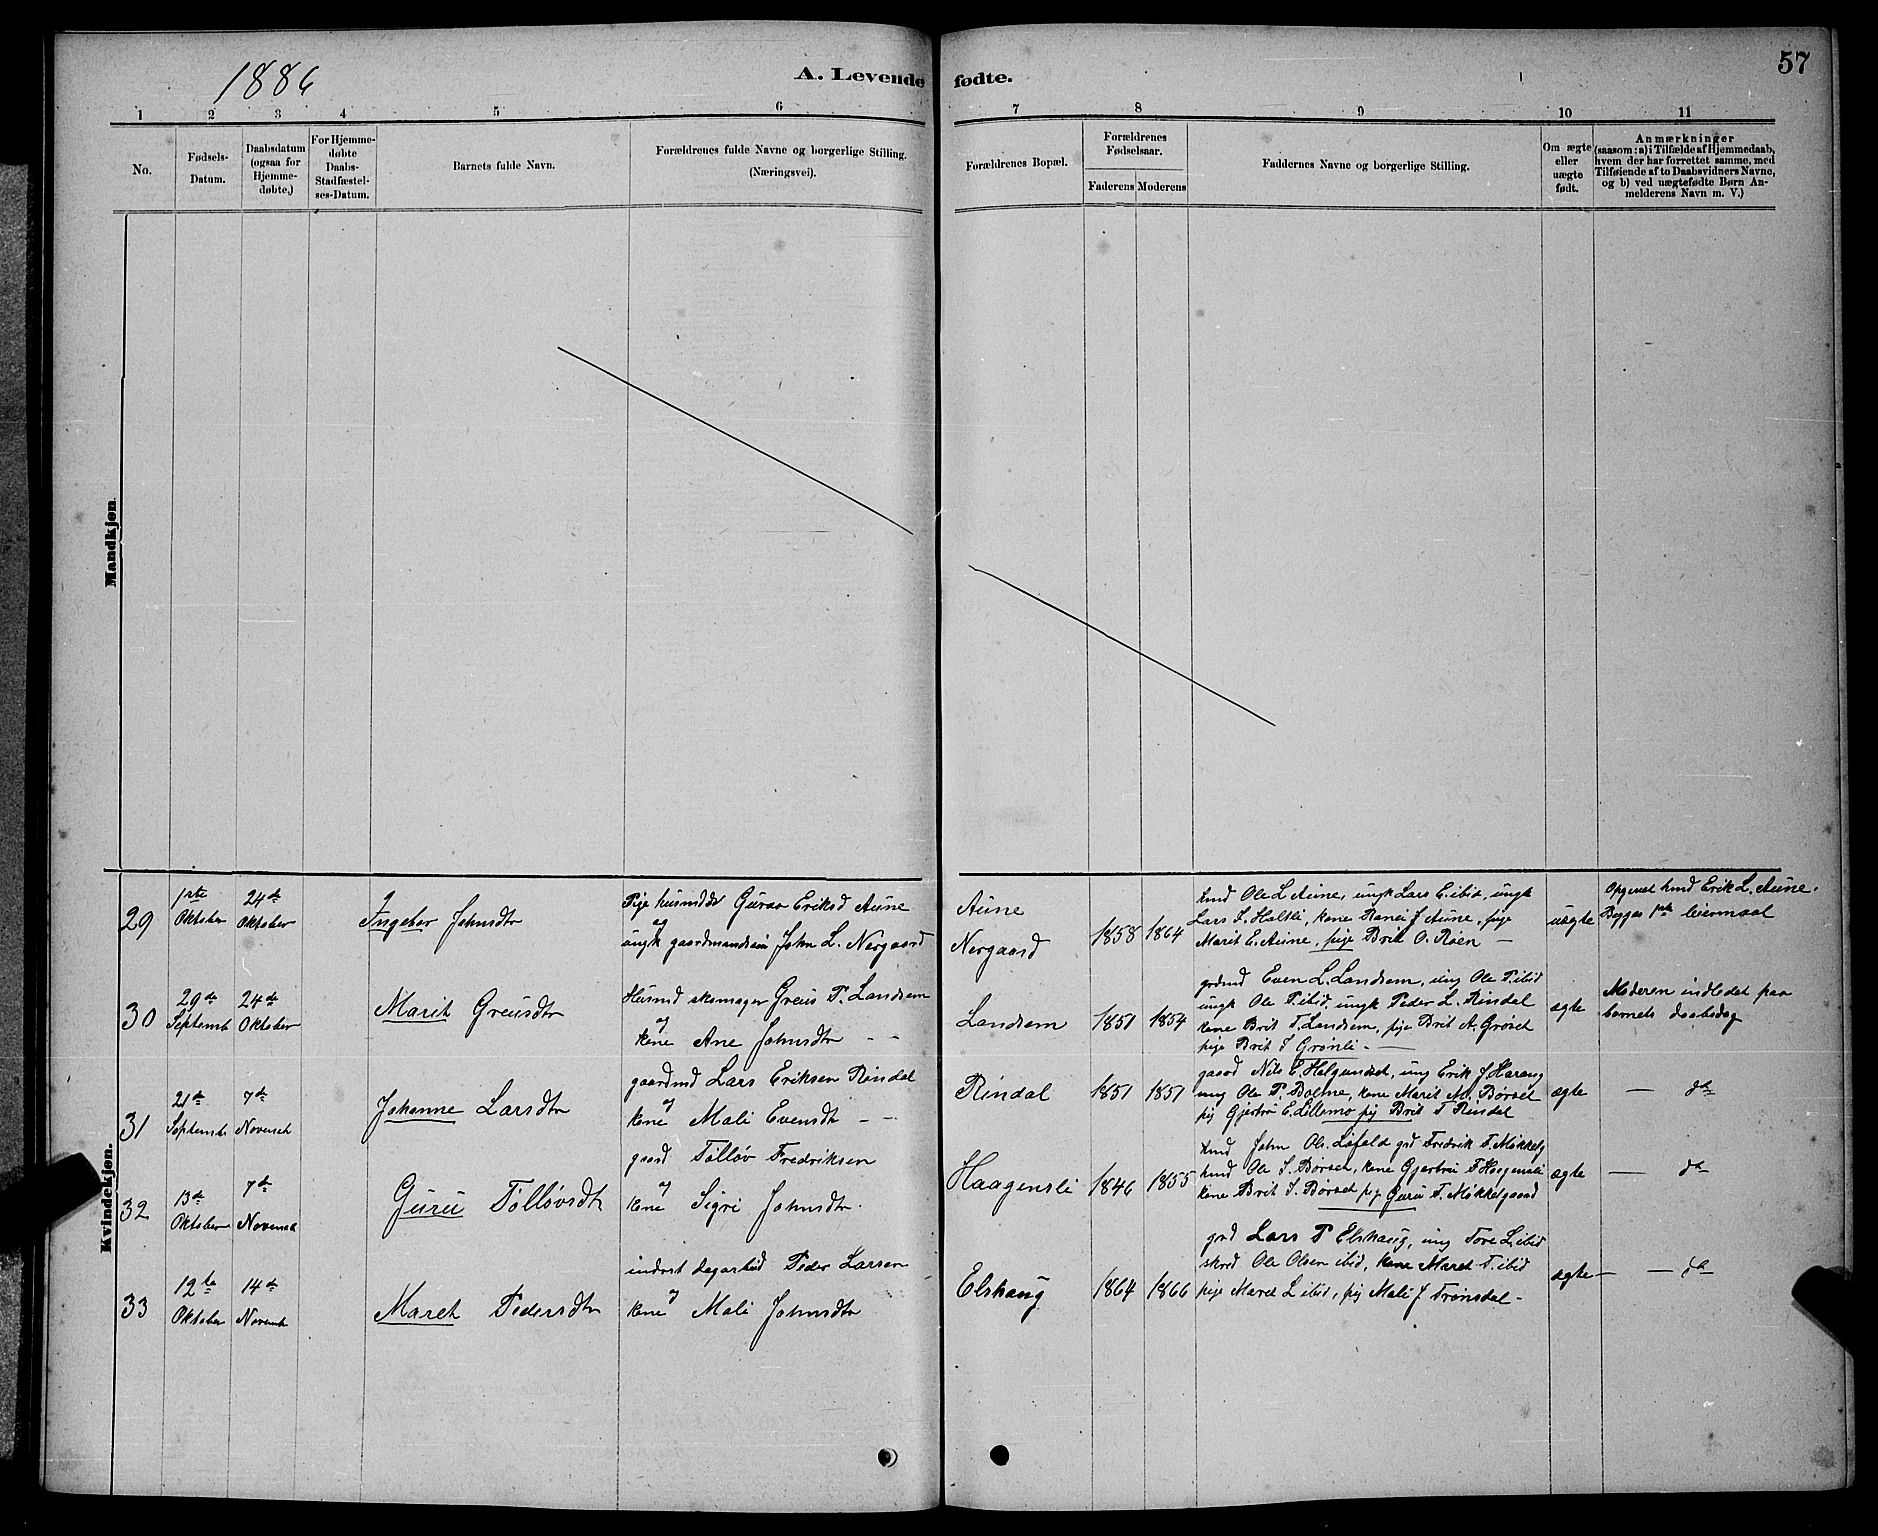 1886
A. Levende fødte.
57
1 2 3 4 5 6 7 8 9 10 11
No.
Fødsels-
Datum.
Daabsdatum
(ogsaa for
Hjemme-
døbte.)
For Hjemme-
døbte
Daabs-
Stadfæstel-
ses-Datum.
Barnets fulde Navn.
Forældrenes fulde Navne og borgerlige Stilling.
(Næringsvei).
Forældrenes Bopæl.
Forældrenes
Fødselsaar.
Faderens Moderens
Faddernes Navne og borgerlige Stilling.
Om ægte
eller
uægte
født.
Anmærkninger
(saasom: a) i Tilfælde af Hjemmedaab,
hvem der har forrettet samme, med
Tilføiende af to Daabsvidners Navne,
og b) ved uægtefødte Børn An-
melderens Navn m. V.)
Mandkjøn.
Kvindekjøn.
29
1ste
Oktober
24de
Oktober
Ingebor Johnsdtr
Pige husmddt Guroo Eriksd Aune
og
ungk gaardmandssøn John L. Nergaard
Aune
Nergaard
1858 1864
husd Ole L Aune, ungk Lars E. ibid, ungk
Lars L. Haltli, kone Ranei J Aune, pige
Marit E. Aune, pige Brit O. Røen —
uægte
Opgivet husd Erik L. Aune.
Begges 1ste leiermaal
30
29de
Septemb
24de
Oktober
Marit Greusdtr
Husmd skomager Greus P. Landsem
og
kone Ane Johnsdtr - -
Landsem
1851 1854
grdmd Even L. Landsem, ung Ole P. ibid
ungk Ole P. ibid, ungk Peder L. Rindal
kone Brit T. Landsem, pige Brit A. Grøset
pige Brit I Grønli. —
ægte
Moderen indledet paa
barnets daabsdag
31
21de
Septemb
7de
Novemb
Johanne Larsdtr
gaardmd Lars Eriksen Rindal
og
kone Mali Evensdt —
Rindal
1851 1851
gaard Nils E. Helgundset, ung Erik J Harang
ung Ole P. Bolme, kone Marit M. Børset
pig Gjertru E. Lillemo pig Brit T Rindal
ægte
— do
32
13de
Oktober
7de
Novemb
Guru Tølløvsdt
gaard Tølløv Fredriksen
og
kone Sigri Johnsdtr.
Haagensli
1846 1855
husd John Ols. Løfald grd Fredrik T. Møkkelg
husd Ole I. Børset, kone Gjertru F Haagensli
kone Brit I. Børset pig Guru T. Møkkelgaard
ægte
— do
33
12te
Oktober
14de
Novemb
Maret Pedersdtr
inderst dagarbeid Peder Larsen
og
kone Mali Johnsdtr
Elshaug
1864 1866
grd Lars P Elshaug, ung Tore L ibid
skrd Ole Olsen ibid, kone Maret T. ibid
pige Maret L ibid, pig Mali J Trønsdal -
ægte
— do